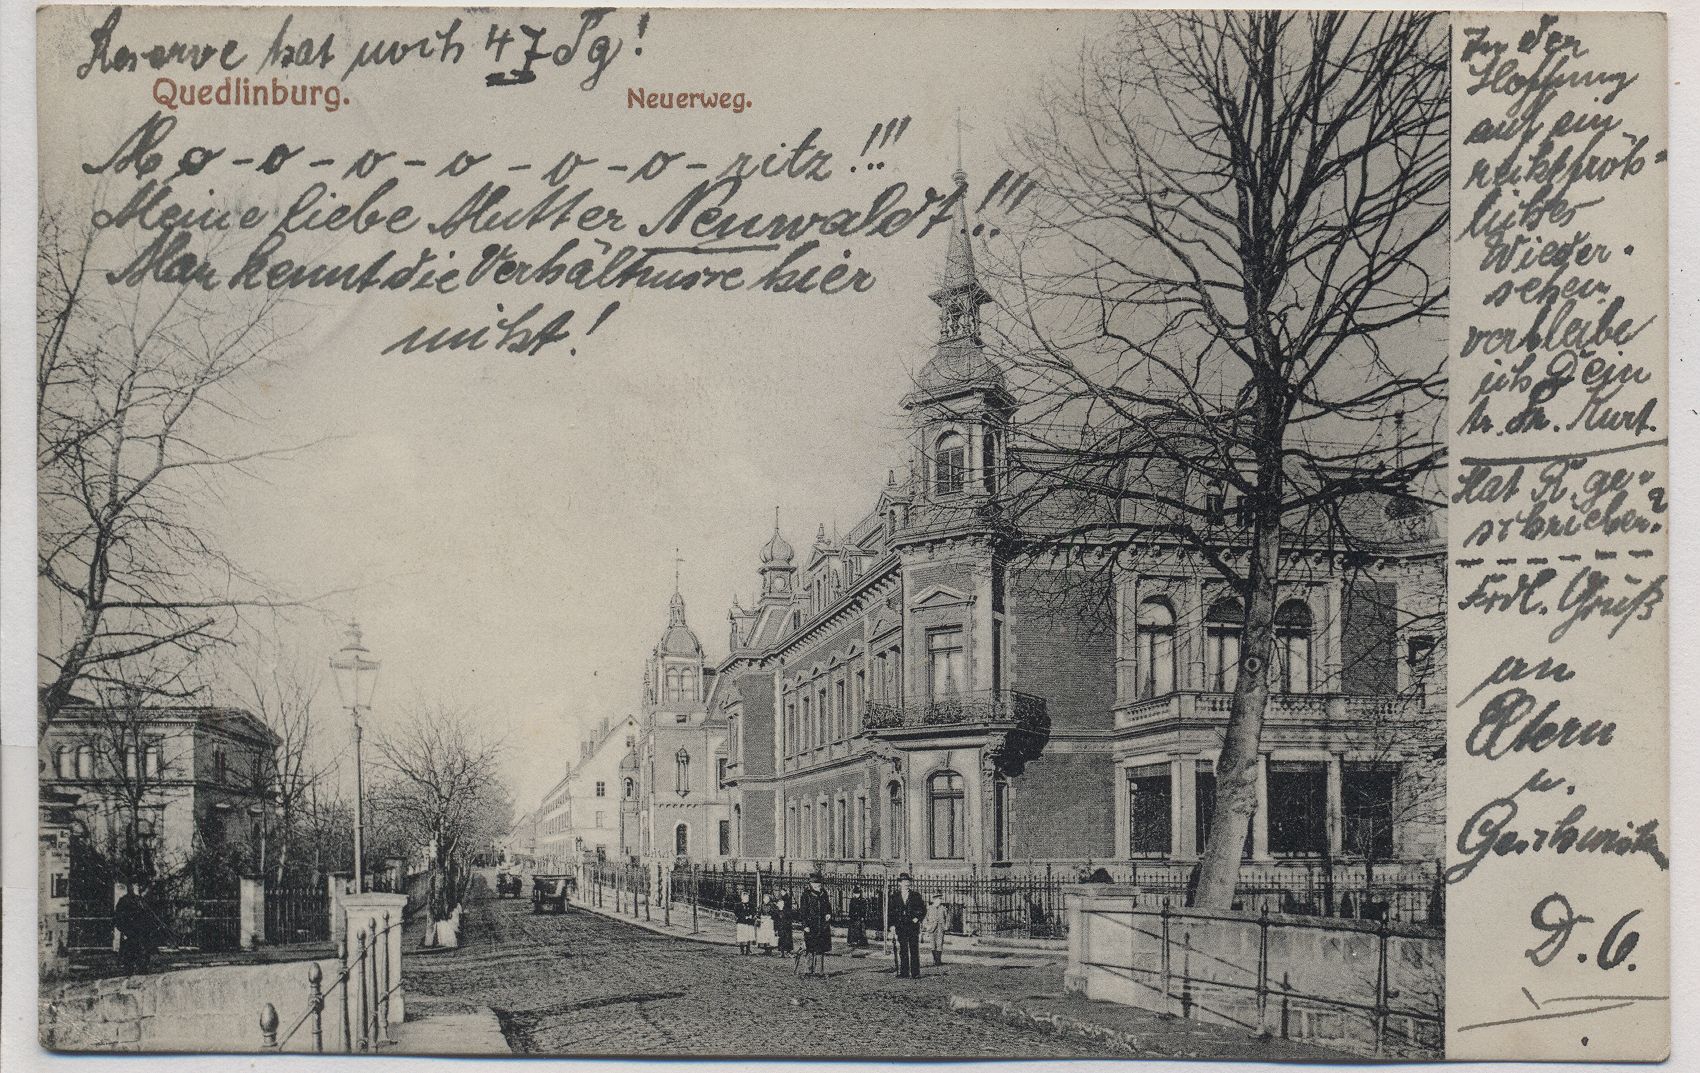 Reserve hat noch 47 Tg!
Quedlinburg.
Neuerweg.
Mo-o-o-o-o-o-ritz!!!
Meine liebe Mutter Neuwaldt!!!
Man kennt die Verhältnisse hier
nicht!
In der
Hoffnung
auf ein
recht fröh-
liches
Wieder-
sehen
verbleibe
ich Dein
tr. Fr. Kurt.
Hat R. ge-
schrieben?
Frdl. Gruß
an
Eltern
u.
Geschwister
D. O.